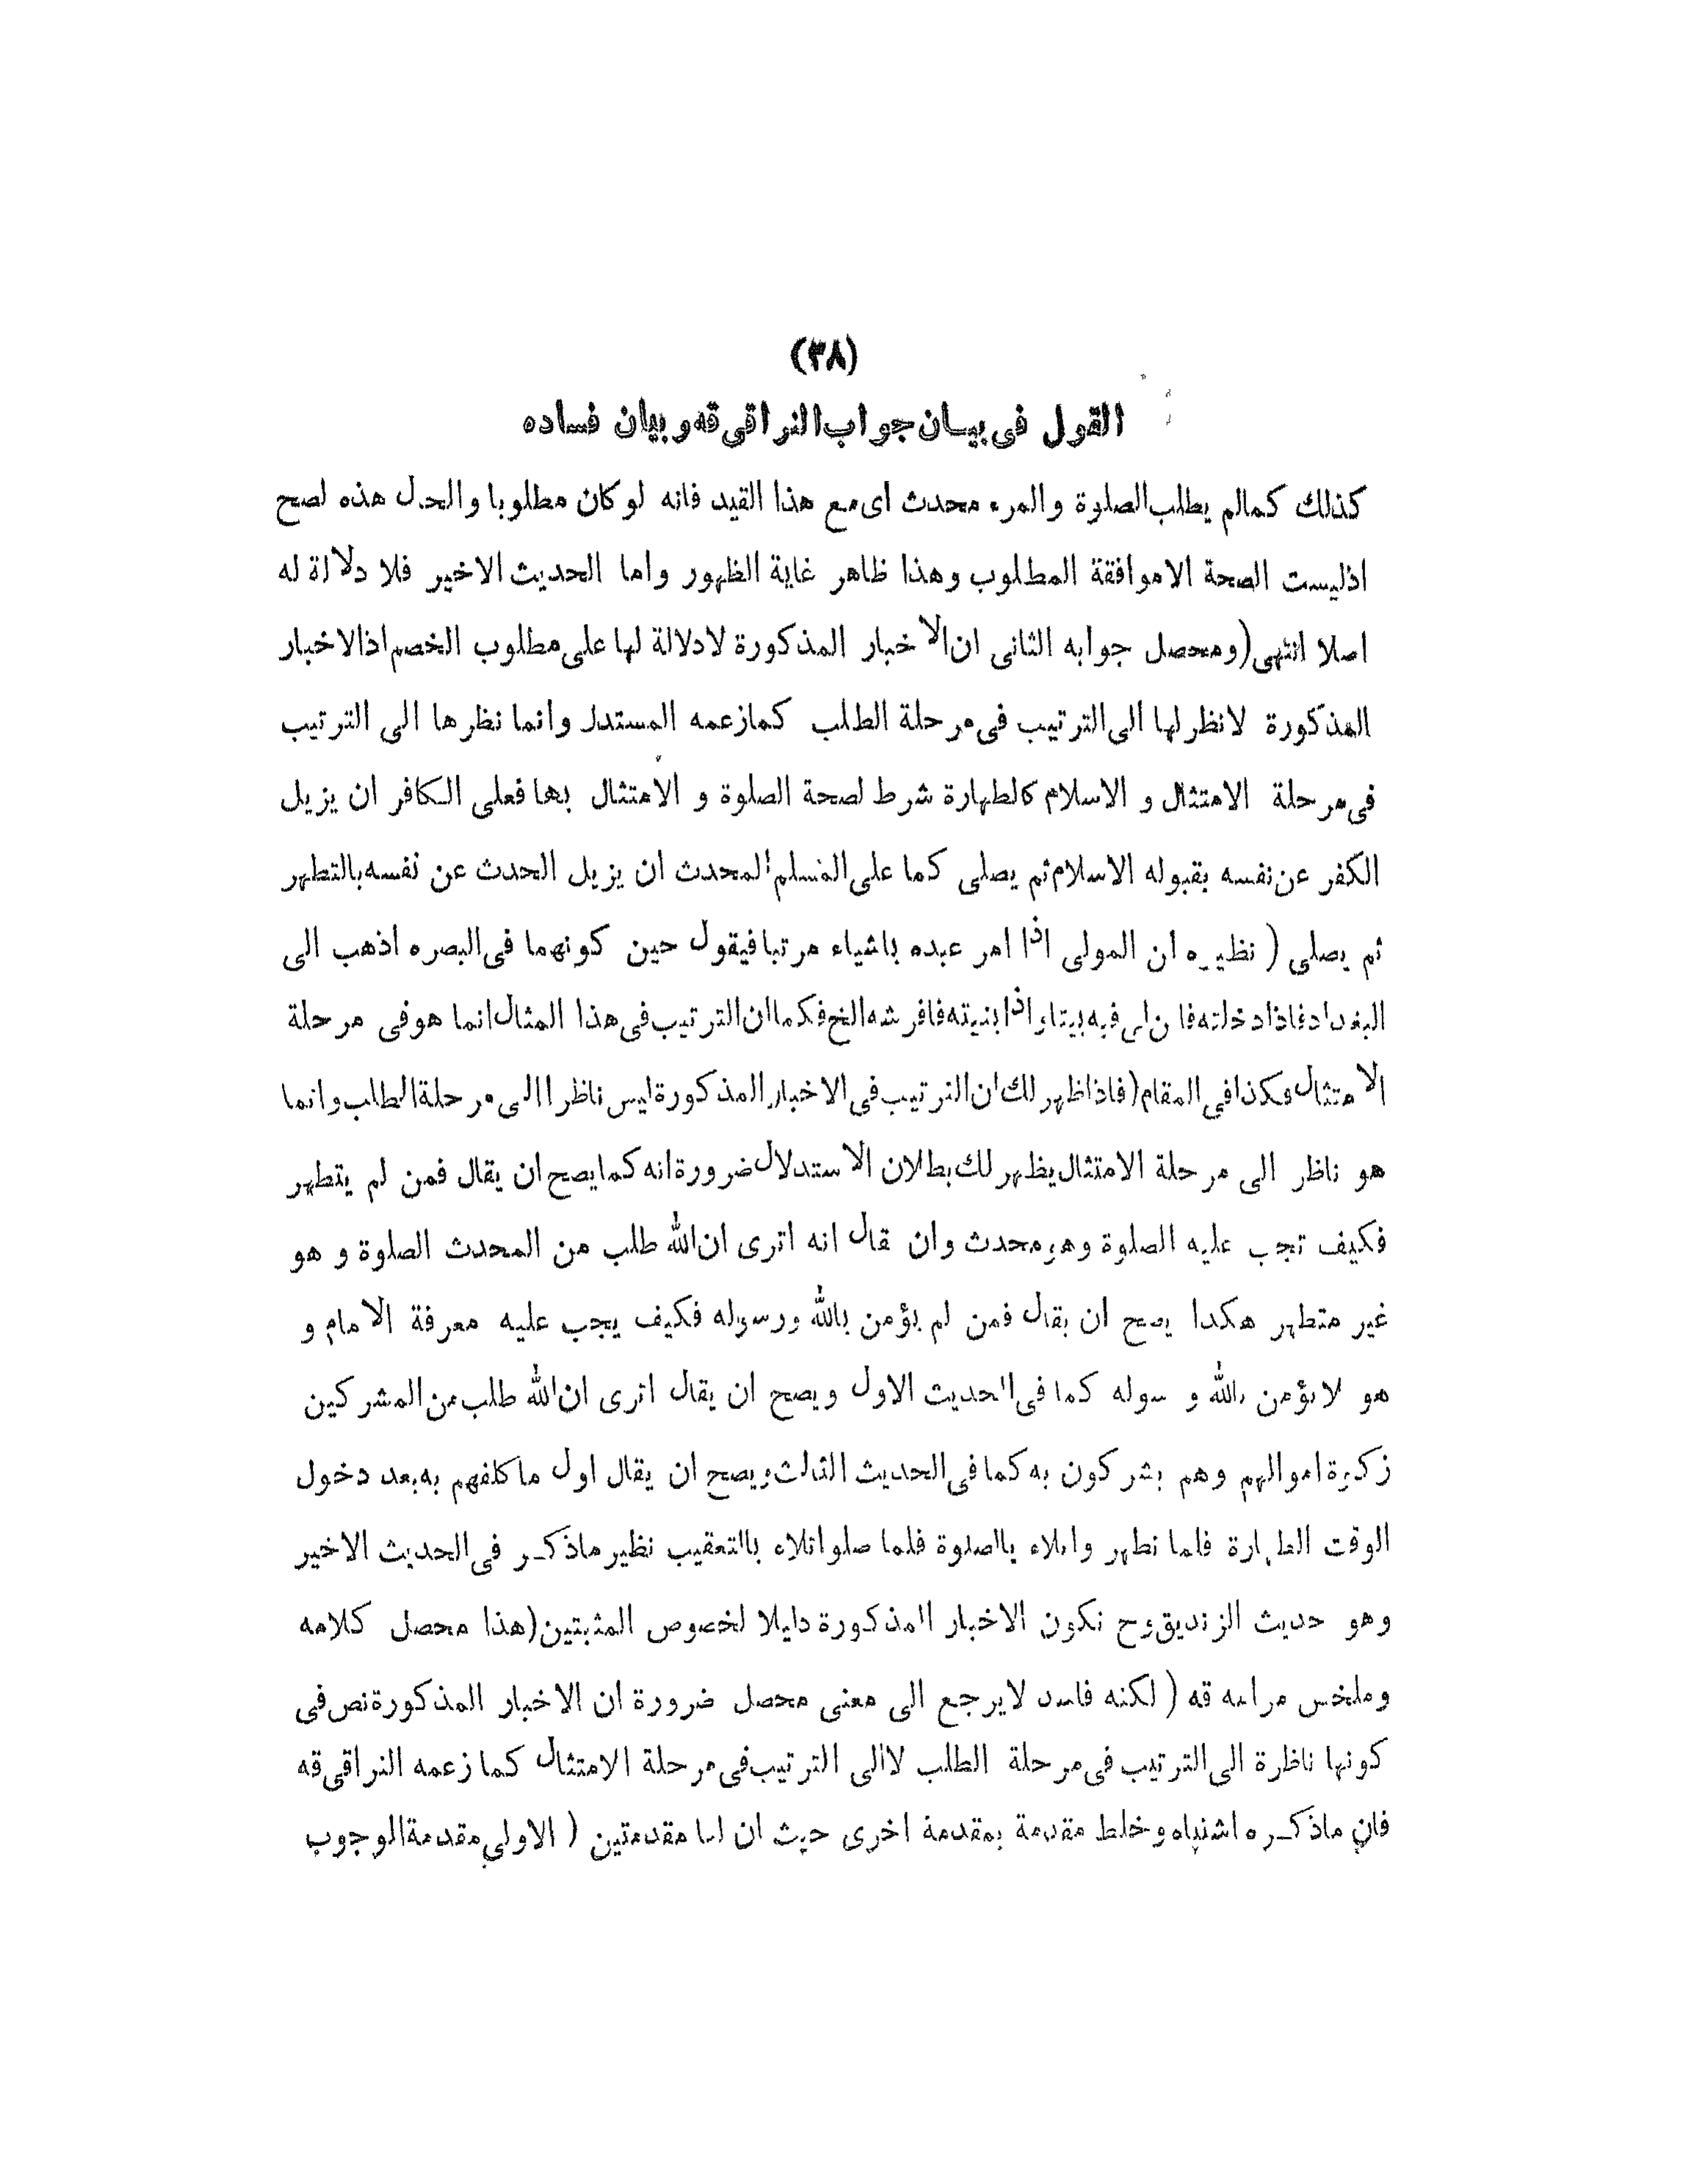 (٣٨)
القول فى بيان جواب النراقى قه وبيان فساده
كذلك كمالم يطلب الصلوة والمرء محدث اى مع هذا القيد فانه لوكان مطلوبا والحال هذه لصح
اذليست الصحة الاموافقة المطلوب وهذا ظاهر غاية الظهور واما الحديث الاخير فلا دلالة له
اصلا انتهى (ومحصل جوابه الثانى ان الاخبار المذكورة لادلالة لها على مطلوب الخصم اذالاخبار
المذكورة لانظر لها الى الترتيب فى مرحلة الطلب كمازعمه المستدل وانما نظرها الى الترتيب
فى مرحلة الامتثال و الاسلام كالطهارة شرط لصحة الصلوة و الامتثال بها فعلى الكافر ان يزيل
الكفر عن نفسه بقبوله الاسلام ثم يصلى كما على المسلم المحدث ان يزيل الحدث عن نفسه بالتطهر
ثم يصلى ( نظيره ان المولى اذا امر عبده باشياء مرتبا فيقول حين كونهما فى البصره اذهب الى
البغداد فاذا دخلته فابن لى فيه بيتا واذا بنيته فافرشه الخ فكما ان الترتيب فى هذا المثال انما هو فى مرحلة
الامتثال فكذا فى المقام (فاذا ظهر لك ان الترتيب فى الاخبار المذكورة ليس ناظرا الى مرحلة الطلب وانما
هو ناظر الى مرحلة الامتثال يظهر لك بطلان الاستدلال ضرورة انه كما يصح ان يقال فمن لم يتطهر
فكيف تجب عليه الصلوة وهو محدث وان قال انه اترى ان الله طلب من المحدث الصلوة و هو
غير متطهر هكذا يصح ان يقال فمن لم يؤمن بالله ورسوله فكيف يجب عليه معرفة الامام و
هو لايؤمن بالله و سوله كما فى الحديث الاول ويصح ان يقال اترى ان الله طلب من المشركين
زكوة اموالهم وهم يشركون به كما فى الحديث الثالث ويصح ان يقال اول ما كلفهم به بعد دخول
الوقت الطهارة فلما تطهر وابلاء بالصلوة فلما صلواتلاء باالتعقيب نظير ماذكر فى الحديث الاخير
وهو حديث الزنديق وح تكون الاخبار المذكورة دليلا لخصوص المثبتين (هذا محصل كلامه
وملخص مرامه قه ( لكنه فاسد لايرجع الى معنى محصل ضرورة ان الاخبار المذكورة نص فى
كونها ناظرة الى الترتيب فى مرحلة الطلب لاالى الترتيب فى مرحلة الامتثال كما زعمه النراقى قه
فان ماذكره اشتباه وخلط مقدمة بمقدمة اخرى حيث ان لنا مقدمتين ( الاولى مقدمة الوجوب